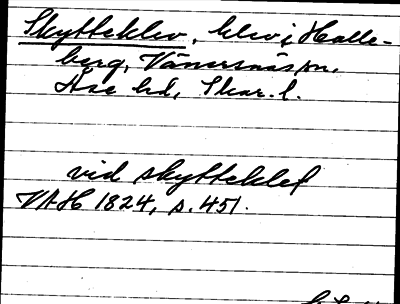 Skytteklev, klev i Halle-
berg, Vänersnäs sn,
Åse hd, Skar. l.
vid skytteklef
VAH 1824, s. 451.